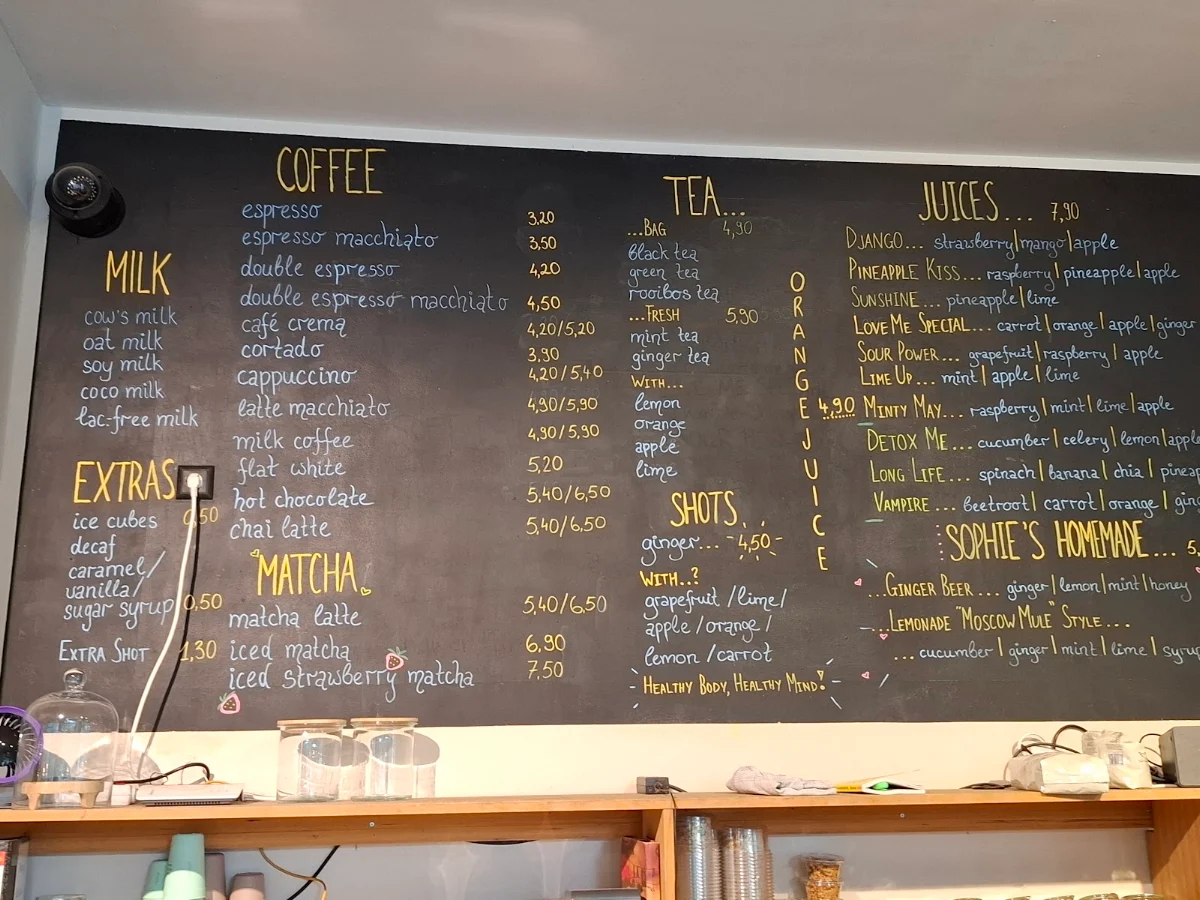 MILK
cow's milk
oat milk
soy milk
coco milk
lac-free milk
EXTRAS
ice cubes 0,50
decaf
caramel/
vanilla/
sugar syrup 0,50
EXTRA SHOT 1,30
COFFEE
espresso 3,20
espresso macchiato 3,50
double espresso 4,20
double espresso macchiato 4,50
café crema 4,20/5,20
cortado 3,90
cappuccino 4,20/5,40
latte macchiato 4,90/5,90
milk coffee 4,90/5,90
flat white 5,20
hot chocolate 5,40/6,50
chai latte 5,40/6,50
MATCHA
matcha latte 5,40/6,50
iced matcha 6,90
iced strawberry matcha 7,50
TEA...
...BAG 4,90
black tea
green tea
rooibos tea
...FRESH 5,90
mint tea
ginger tea
WITH...
lemon
orange
apple
lime
SHOTS
ginger... 4,50
WITH..?
grapefruit /lime/
apple /orange/
lemon /carrot
HEALTHY BODY, HEALTHY MIND!
ORANGE JUICE 4,90
JUICES... 7,90
DJANGO... strawberry|mango|apple
PINEAPPLE KISS... raspberry|pineapple|apple
SUNSHINE... pineapple|lime
LOVE ME SPECIAL... carrot|orange|apple|ginger
SOUR POWER... grapefruit|raspberry|apple
LIME UP... mint|apple|lime
MINTY MAY... raspberry|mint|lime|apple
DETOX ME... cucumber|celery|lemon|apple
LONG LIFE... spinach|banana|chia|pineap
VAMPIRE... beetroot|carrot|orange|ging
SOPHIE'S HOMEMADE... 5,
...GINGER BEER... ginger|lemon|mint|honey
...LEMONADE "MOSCOW MULE" STYLE...
...cucumber|ginger|mint|lime|syrup